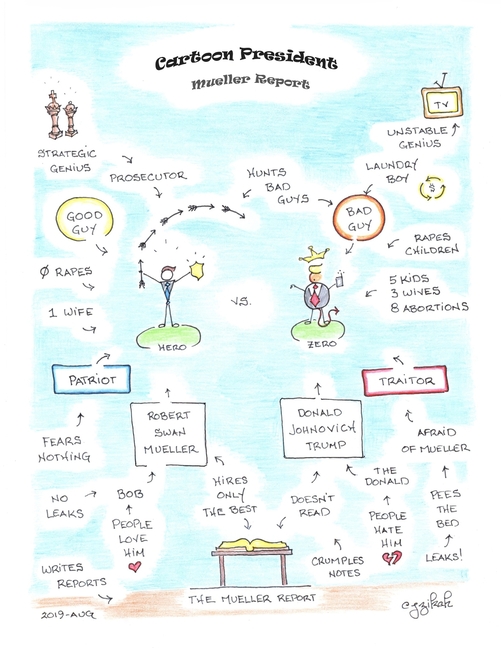 Cartoon President
Mueller Report
TV
UNSTABLE
GENIUS
STRATEGIC
GENIUS
PROSECUTOR
HUNTS
BAD
GUYS
LAUNDRY
BOY
$
GOOD
GUY
BAD
GUY
RAPES
CHILDREN
Ø RAPES
5 KIDS
3 WIVES
8 ABORTIONS
1 WIFE
VS.
HERO
ZERO
PATRIOT
TRAITOR
ROBERT
SWAN
MUELLER
DONALD
JOHNOVICH
TRUMP
FEARS
NOTHING
AFRAID
OF MUELLER
HIRES
ONLY
THE BEST
DOESN'T
READ
THE
DONALD
NO
LEAKS
BOB
PEOPLE
LOVE
HIM
PEOPLE
HATE
HIM
PEES
THE
BED
LEAKS!
CRUMPLES
NOTES
WRITES
REPORTS
THE MUELLER REPORT
2019-AUG
cgzikah